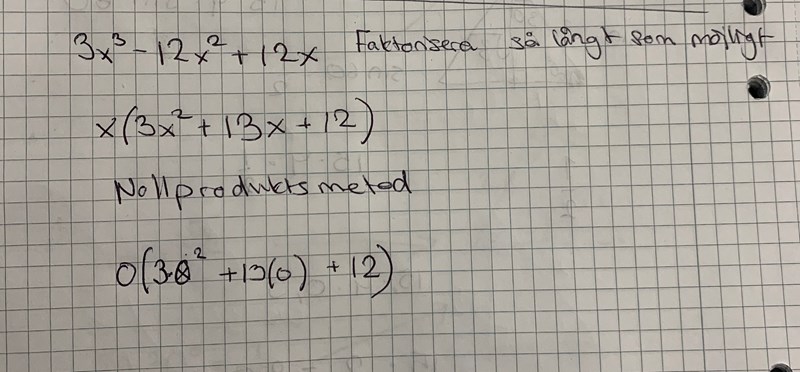 3x³ - 12x² + 12x Faktorisera så långt som möjligt
x(3x² + 13x + 12)
Nollproduktsmetod
0(3·0² + 13(0) + 12)